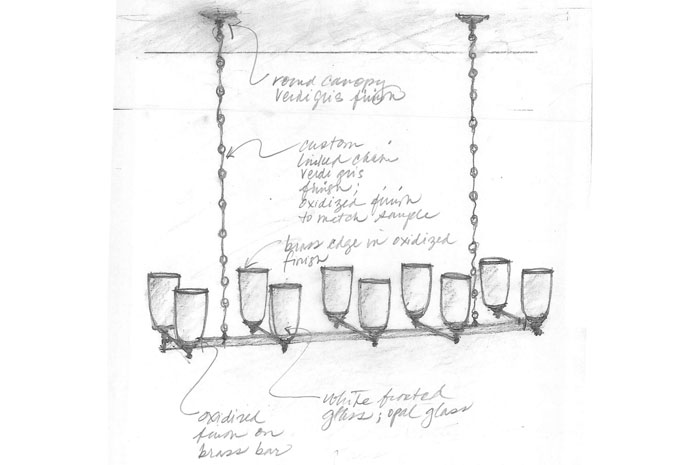 round canopy
verdigris finish
custom
linked chain
verdigris
finish;
oxidized finish
to match sample
brass edge in oxidized
finish
white frosted
glass; opal glass
oxidized
finish on
brass bar